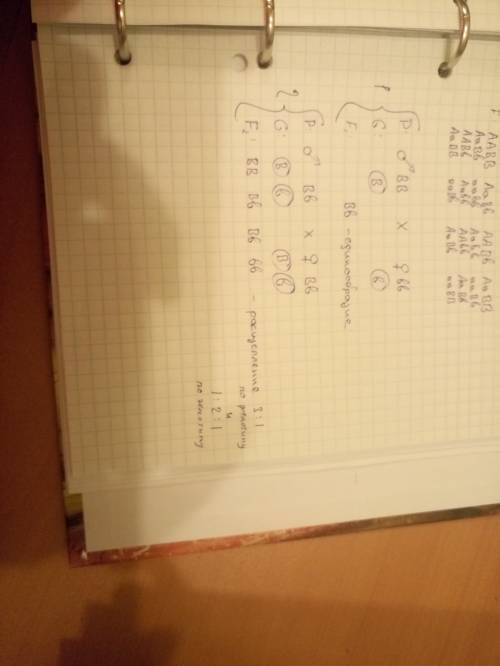 P: AABB AaBb AABb AaBB
AaBb aaBb AaBb aaBb
AABb AaBb AAbb AaBb
AaBB aaBb AaBb aaBB
1 P: ♂ BB x ♀ bb
G: B b
F₁ Bb - единообразие
2 P ♂ Bb x ♀ Bb
G: B b B b
F₂: BB Bb Bb bb - расщепление 3:1
по фенотипу
и
1:2:1
по генотипу